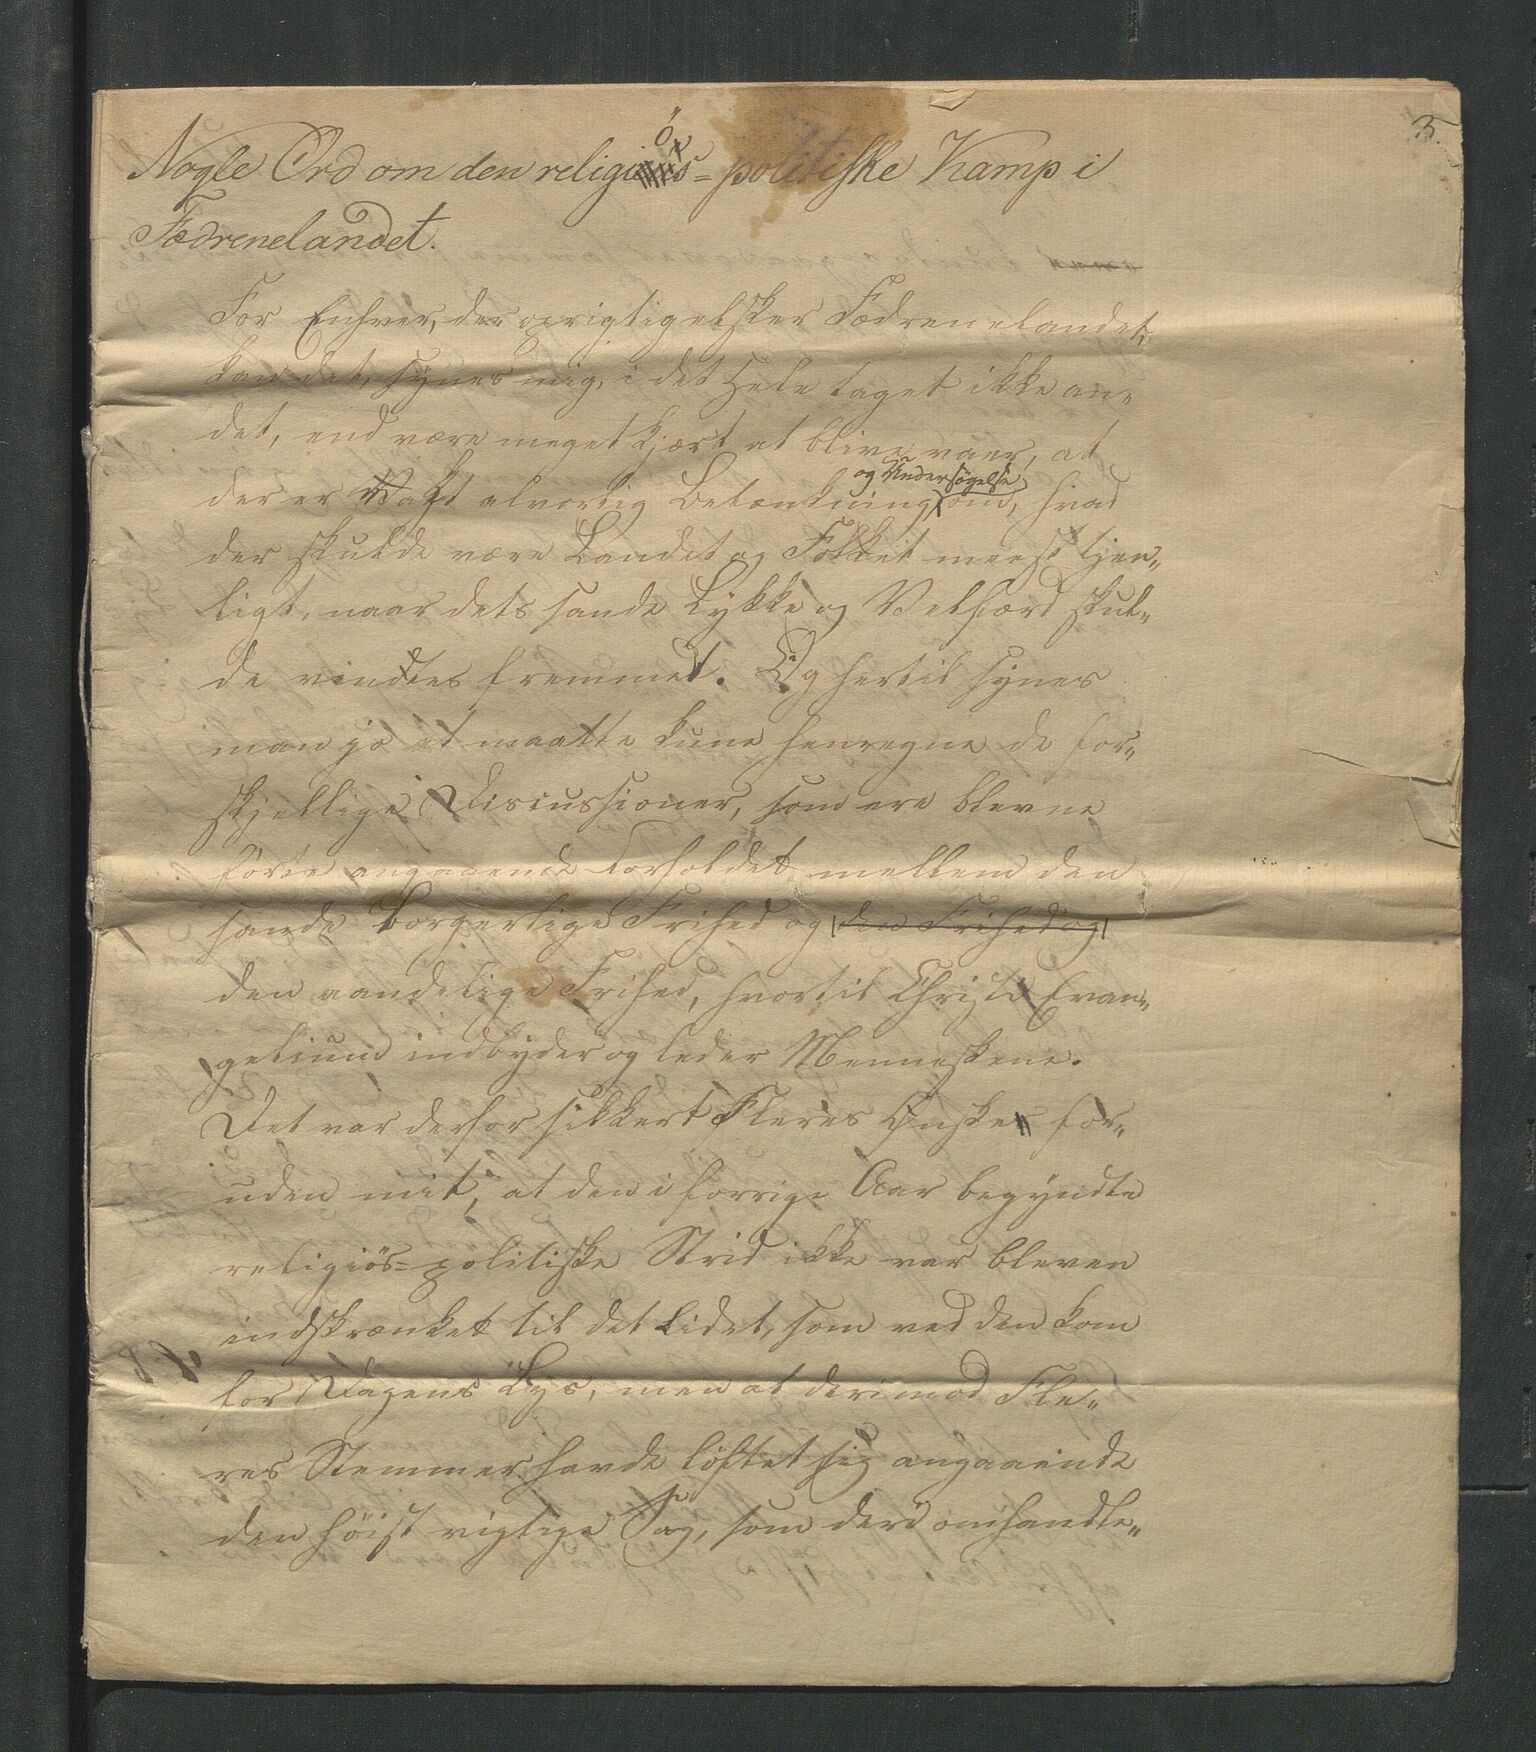 3.
Nogle Ord om den religiös-politiske Kamp i
Fædrenelandet.
For Enhver, der oprigtig elsker Fædrenelandet,
kan det, synes mig, i det Hele taget ikke an-
det, end være meget kjært at blive vaer, at
der er vakt alvorlig Betænkning og Undersøgelse om, hvad
der skulde være Landet og Folket meest tjen-
ligt, naar dets sande Lykke og Velfærd skul-
de vindes fremmet. Og hertil synes
man jo at maatte kune henregne de for-
skjellige Discussioner, som ere blevne
førte angaaende Forholdet mellem den
sande borgerlige Frihed og den Frihed og
den aandelige Frihed, hvortil Christi Evan-
gelium indbyder og leder Menneskene.
Det var derfor sikkert Fleres Ønske for-
uden mit, at den i forrige Aar begyndte
religiös-politiske Strid ikke var bleven
indskrænket til det Lidet, som ved den kom
for Dagens Lys, men at derimod Fle-
res Stemmer havde löftet sig angaaende
den höist vigtige Sag, som deri omhandle-